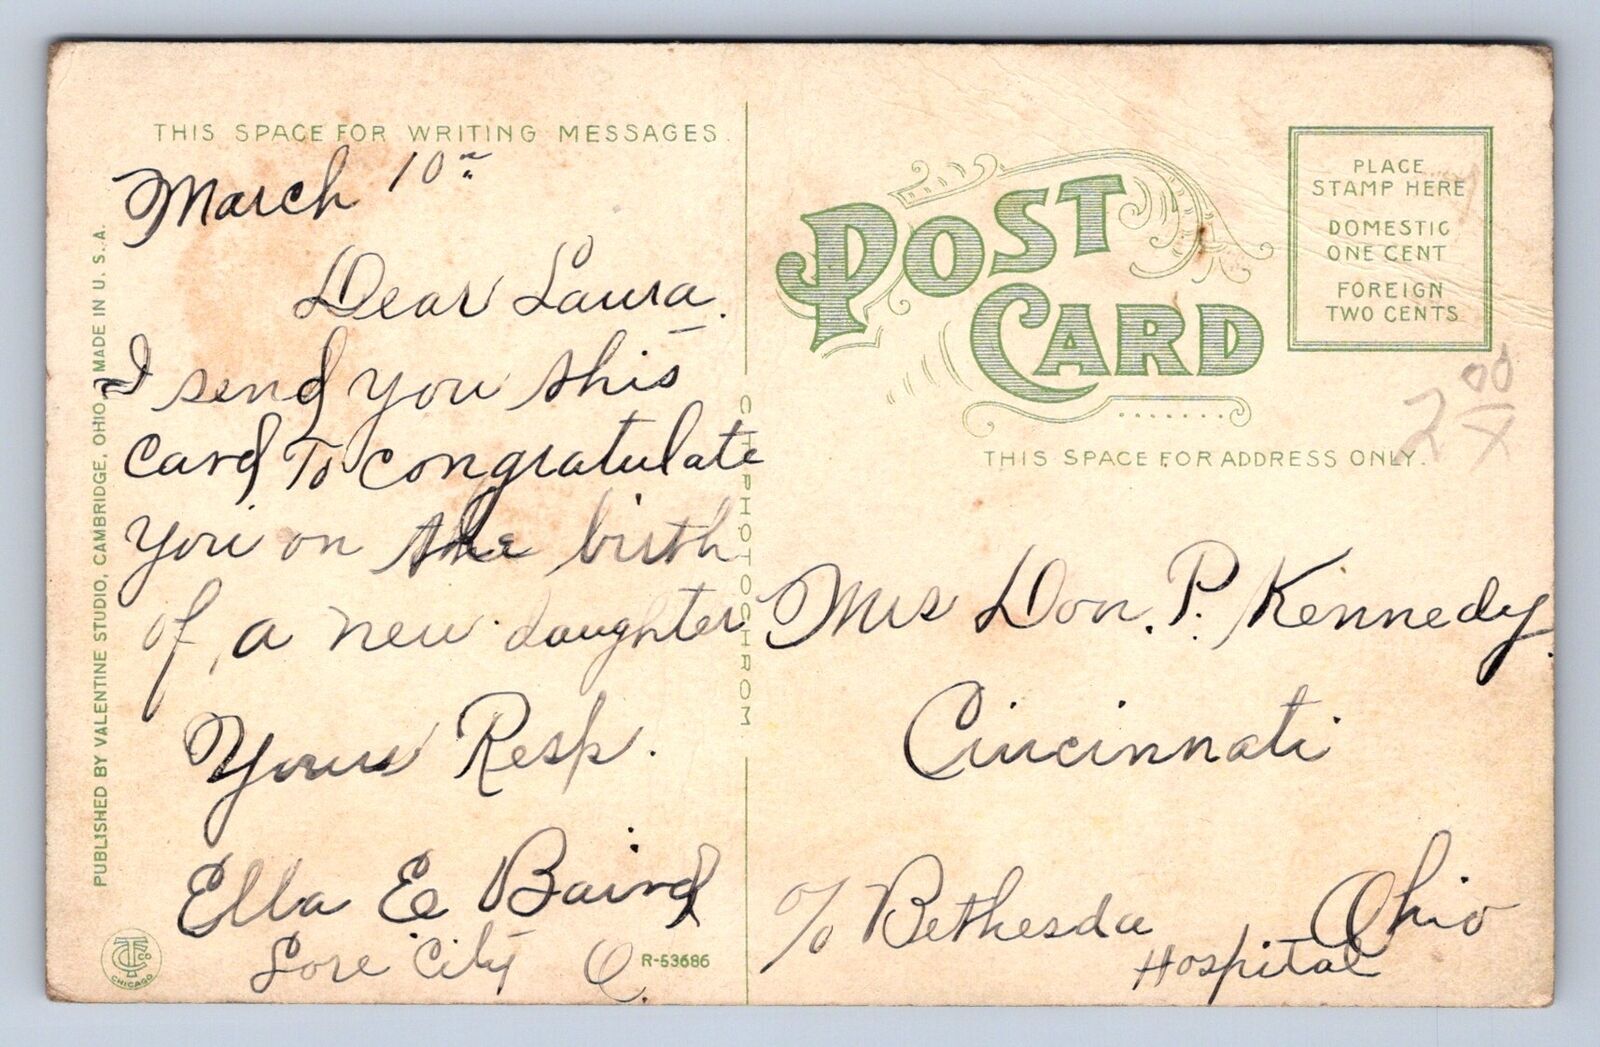 THIS SPACE FOR WRITING MESSAGES.
March 10th
Dear Laura.
I send you this
card To congratulate
you on the birth
of a new daughter
Yours Resp.
Ella E Baird
Lore City O.
R-53686
PUBLISHED BY VALENTINE STUDIO, CAMBRIDGE, OHIO, MADE IN U. S. A.
CHICAGO
POST
CARD
PLACE
STAMP HERE
DOMESTIC
ONE CENT
FOREIGN
TWO CENTS
2 00
THIS SPACE FOR ADDRESS ONLY.
Mrs Don. P. Kennedy.
Cincinnati
Ohio
c/o Bethesda
Hospital